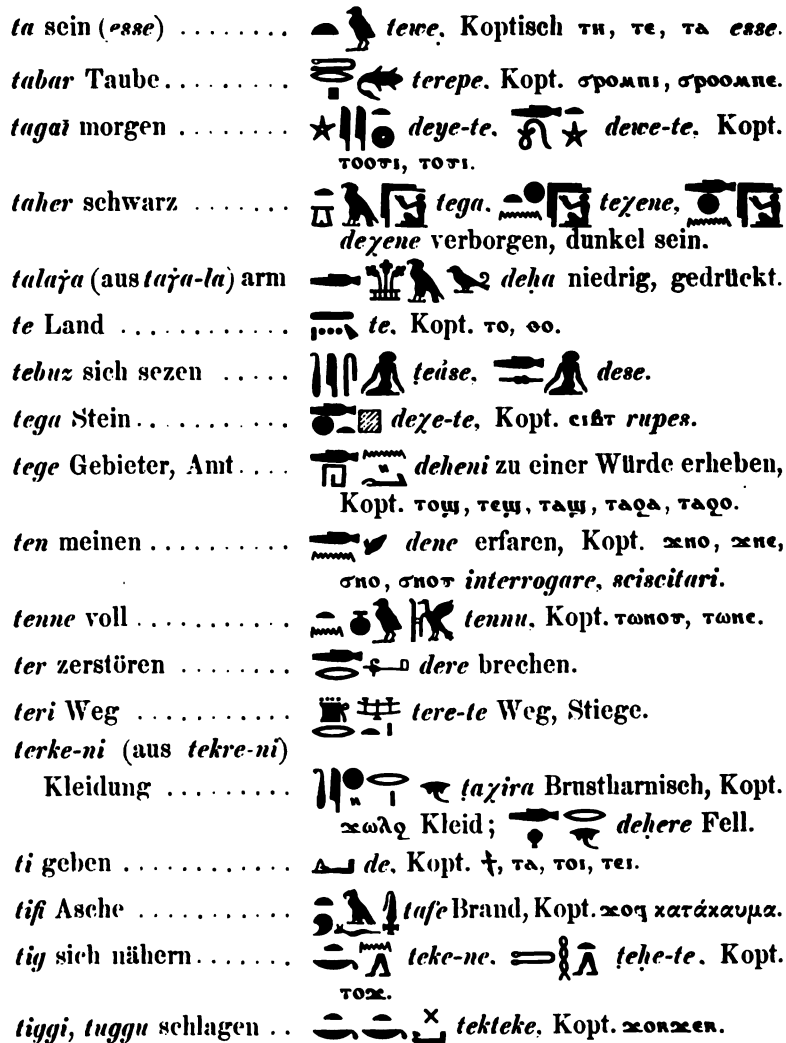 ta sein (esse) ........ tewe. Koptisch ⲧⲏ, ⲧⲉ, ⲧⲁ esse.
tabar Taube.......... terepe. Kopt. ϭⲣⲟⲙⲡⲓ, ϭⲣⲟⲟⲙⲡⲉ.
tagaï morgen ....... deye-te. dewe-te. Kopt.
ⲧⲟⲟⲩⲓ, ⲧⲟⲩⲓ.
taher schwarz ....... tega. teχene,
deχene verborgen, dunkel sein.
arm deḥa niedrig, gedrückt.
te Land ........... te. Kopt. ⲧⲟ, ⲑⲟ.
tebuz sich sezen ..... ṭeáse. dese.
tega Stein........... deχe-te, Kopt. ⲥⲓⲃⲧ rupes.
tege Gebieter, Amt.... deheni zu einer Würde erheben,
Kopt. ⲧⲟϣ, ⲧⲉϣ, ⲧⲁϣ, ⲧⲁϩⲁ, ⲧⲁϩⲟ.
ten meinen .......... dene erfaren, Kopt. ϫⲛⲟ, ϫⲛⲉ,
ϭⲛⲟ, ϭⲛⲟⲩ interrogare, sciscitari.
tenne voll ........... tennu. Kopt. ⲧⲱⲛⲟⲩ, ⲧⲱⲛⲉ.
ter zerstören ........ dere brechen.
teri Weg ........... tere-te Weg, Stiege.
terke-ni (aus tekre-ni)
Kleidung ......... ṭaχira Brustharnisch, Kopt.
ϫⲱⲗϩ Kleid; deḥere Fell.
ti geben ............ de. Kopt. ϯ, ⲧⲁ, ⲧⲟⲓ, ⲧⲉⲓ.
tifi Asche ........... ṭafe Brand, Kopt. ϫⲟϥ κατάκαυμα.
tig sich nähern....... teke-ne. ṭeḥe-te. Kopt.
ⲧⲟϫ.
tiggi, tuggu schlagen .. tekteke, Kopt. ϫⲟⲛϫⲉⲛ.